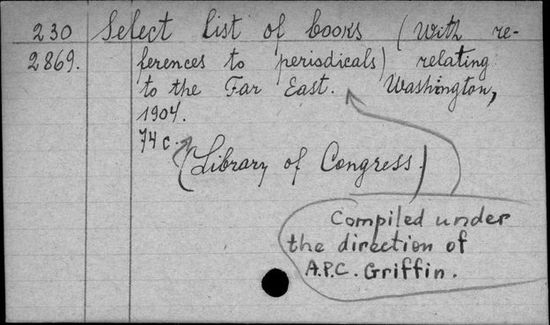 230 Select list of books (with re-
2869. ferences to periodicals) relating
to the Far East. Washington,
1904.
74 c.
(Library of Congress)
Compiled under
the direction of
A.P.C. Griffin.